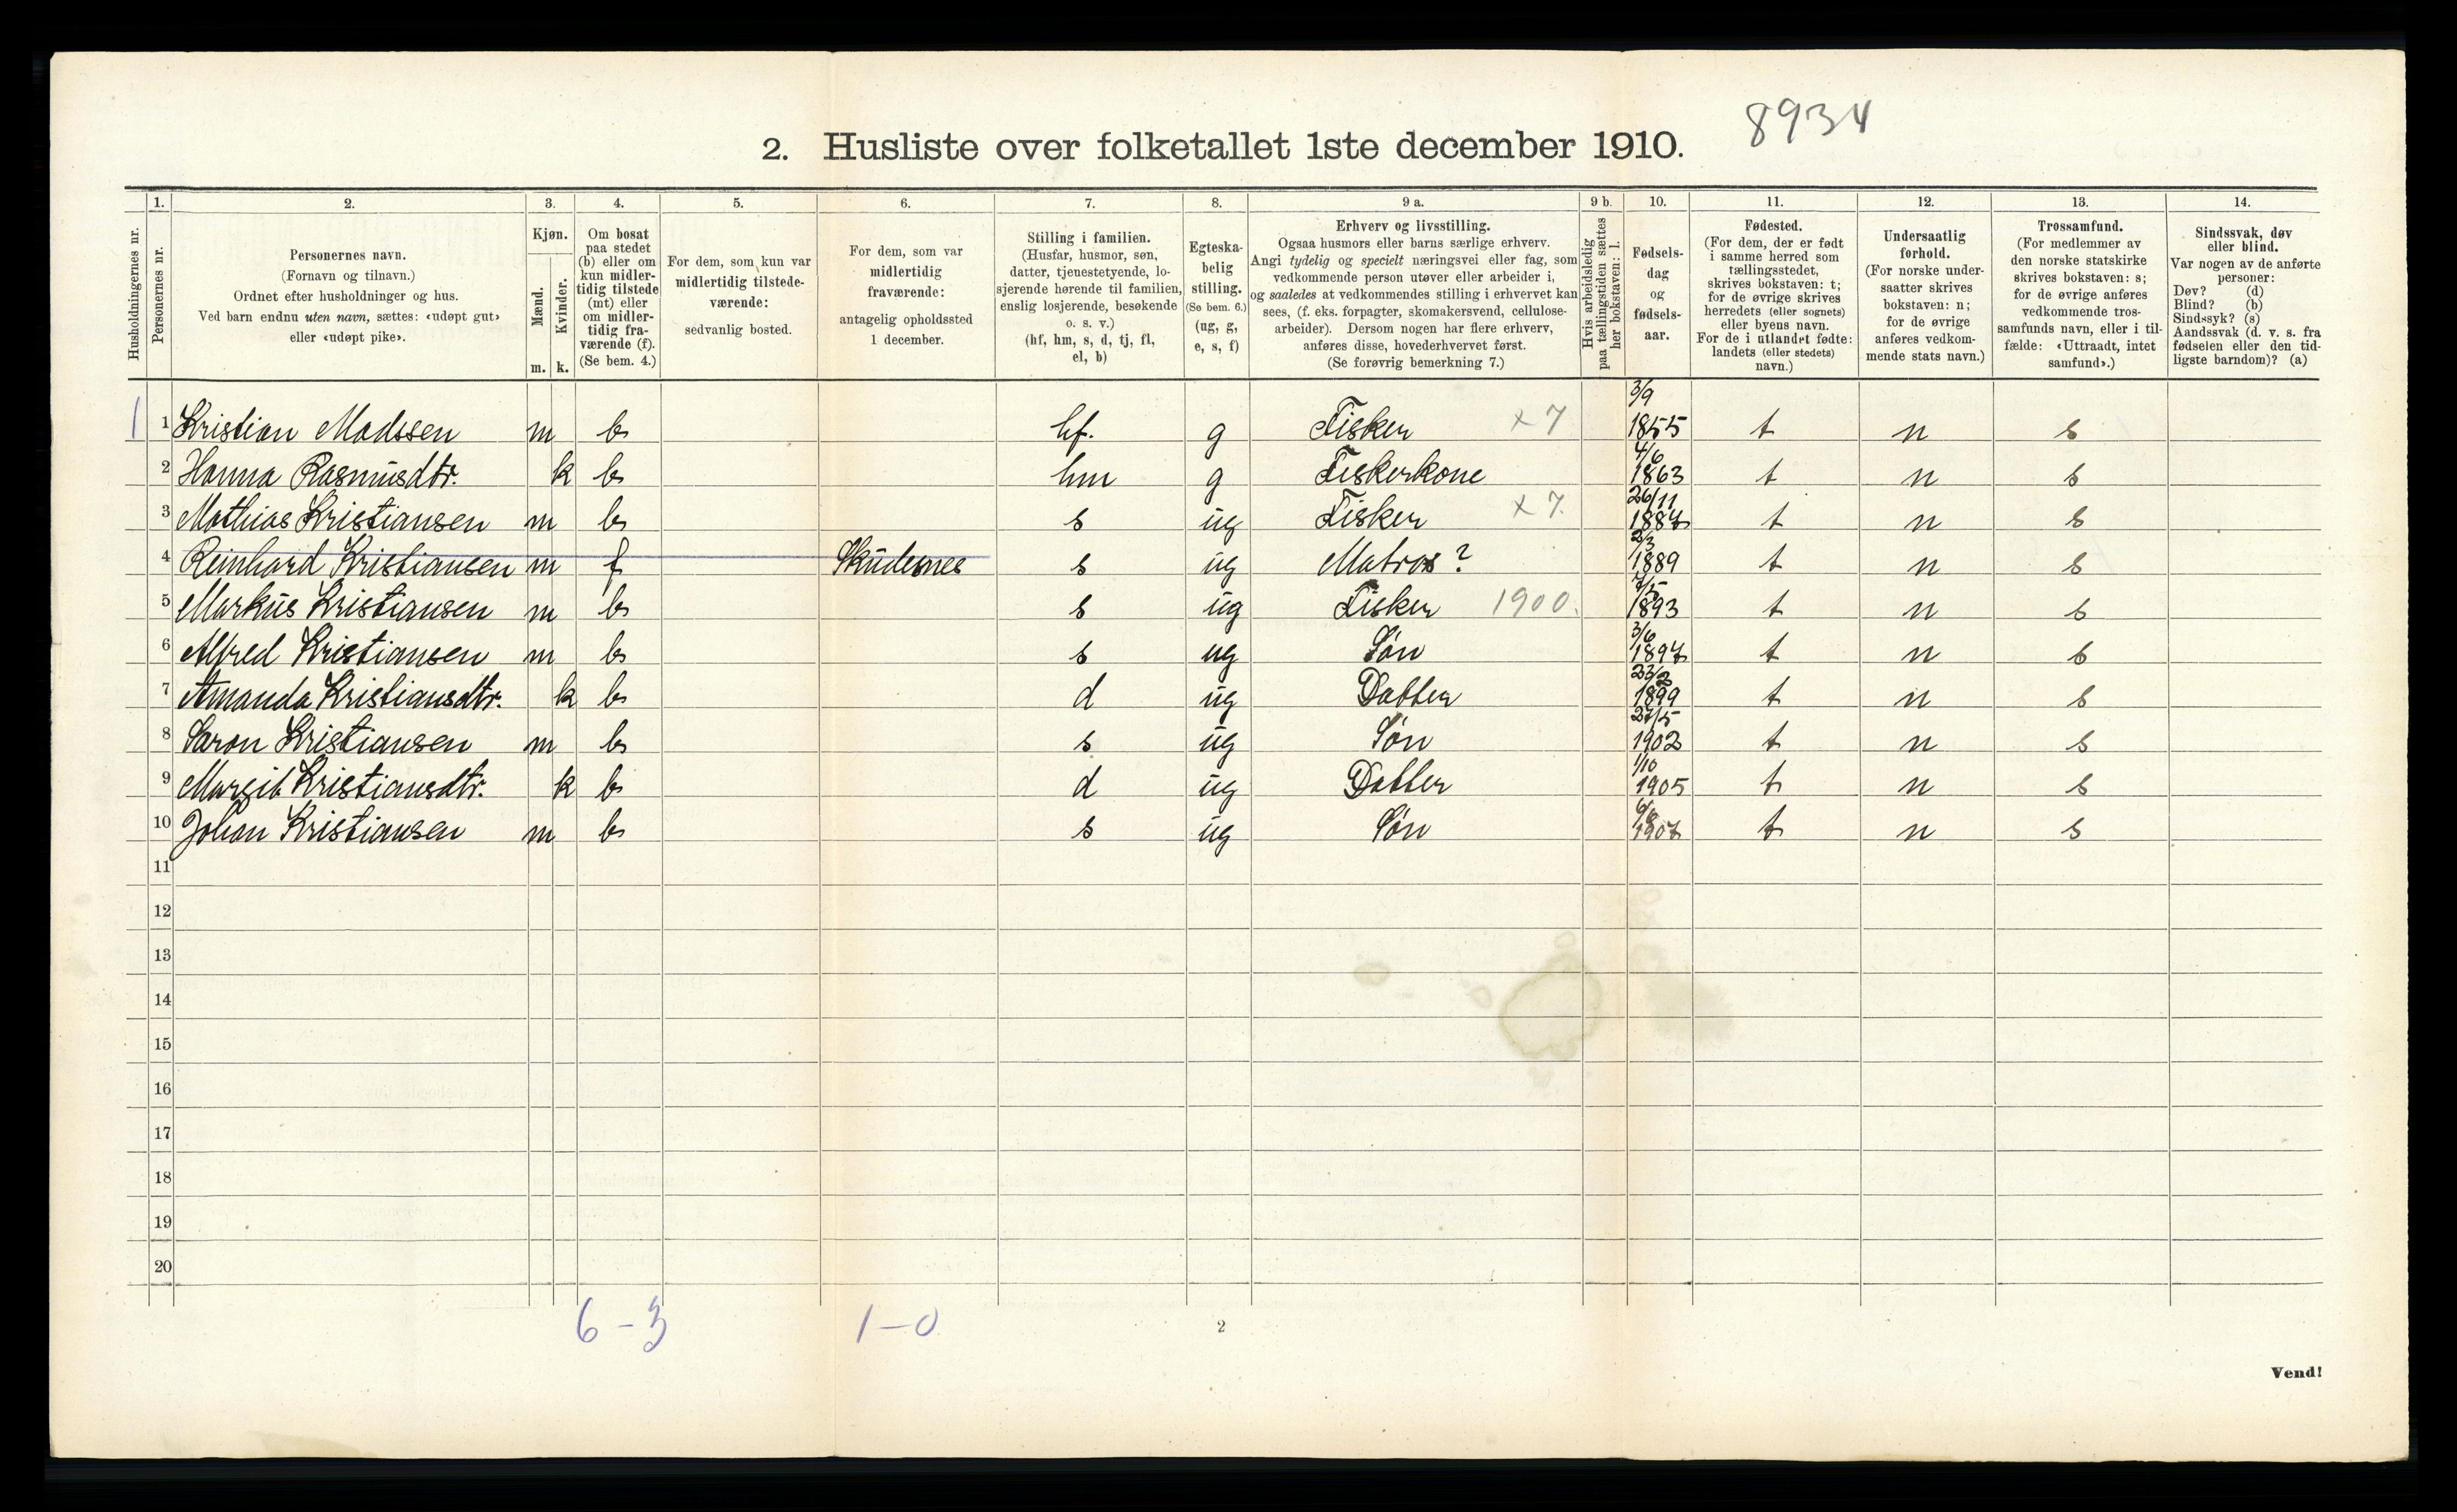 8934
2. Husliste over folketallet 1ste december 1910.
Husholdningernes nr.
1. Personernes nr.
2. Personernes navn.
(Fornavn og tilnavn.)
Ordnet efter husholdninger og hus.
Ved barn endnu uten navn, sættes: «udøpt gut»
eller «udøpt pike».
3. Kjøn.
Mænd. Kvinder.
m. k.
4. Om bosat
paa stedet
(b) eller om
kun midler-
tidig tilstede
(mt) eller
om midler-
tidig fra-
værende (f).
(Se bem. 4.)
5. For dem, som kun var
midlertidig tilstede-
værende:
sedvanlig bosted.
6. For dem, som var
midlertidig
fraværende:
antagelig opholdssted
1 december.
7. Stilling i familien.
(Husfar, husmor, søn,
datter, tjenestetyende, lo-
sjerende hørende til familien,
enslig losjerende, besøkende
o. s. v.)
(hf, hm, s, d, tj, fl,
el, b)
8. Egteska-
belig
stilling.
(Se bem. 6.)
(ug, g,
e, s, f)
9 a. Erhverv og livsstilling.
Ogsaa husmors eller barns særlige erhverv.
Angi tydelig og specielt næringsvei eller fag, som
vedkommende person utøver eller arbeider i,
og saaledes at vedkommendes stilling i erhvervet kan
sees, (f. eks. forpagter, skomakersvend, cellulose-
arbeider). Dersom nogen har flere erhverv,
anføres disse, hovederhvervet først.
(Se forøvrig bemerkning 7.)
9 b. Hvis arbeidsledig
paa tællingstiden sættes
her bokstaven: l.
10. Fødsels-
dag
og
fødsels-
aar.
11. Fødested.
(For dem, der er født
i samme herred som
tællingsstedet,
skrives bokstaven: t;
for de øvrige skrives
herredets (eller sognets)
eller byens navn.
For de i utlandet fødte:
landets (eller stedets)
navn.)
12. Undersaatlig
forhold.
(For norske under-
saatter skrives
bokstaven: n;
for de øvrige
anføres vedkom-
mende stats navn.)
13. Trossamfund.
(For medlemmer av
den norske statskirke
skrives bokstaven: s;
for de øvrige anføres
vedkommende tros-
samfunds navn, eller i til-
fælde: «Uttraadt, intet
samfund».)
14. Sindssvak, døv
eller blind.
Var nogen av de anførte
personer:
Døv? (d)
Blind? (b)
Sindssyk? (s)
Aandssvak (d. v. s. fra
fødselen eller den tid-
ligste barndom)? (a)
1 1 Kristian Madssen m b hf. g Fisker x 7 3/9 1855 t n s
2 Hanna Rasmusdtr. k b hm g Fiskerkone 4/6 1863 t n s
3 Mathias Kristiansen m b s ug Fisker x 7. 26/11 1887 t n s
4 Reinhard Kristiansen m f Skudesnes s ug Matros? 2/3 1889 t n s
5 Markus Kristiansen m b s ug Fisker 1900. 7/5 1893 t n s
6 Alfred Kristiansen m b s ug Søn 3/6 1897 t n s
7 Amanda Kristiansdtr. k b d ug Datter 23/2 1899 t n s
8 Saron Kristiansen m b s ug Søn 27/5 1902 t n s
9 Margit Kristiansdtr. k b d ug Datter 1/10 1905 t n s
10 Johan Kristiansen m b s ug Søn 1907 t n s
11
12
13
14
15
16
17
18
19
20
6 - 3 1 - 0
2
Vend!